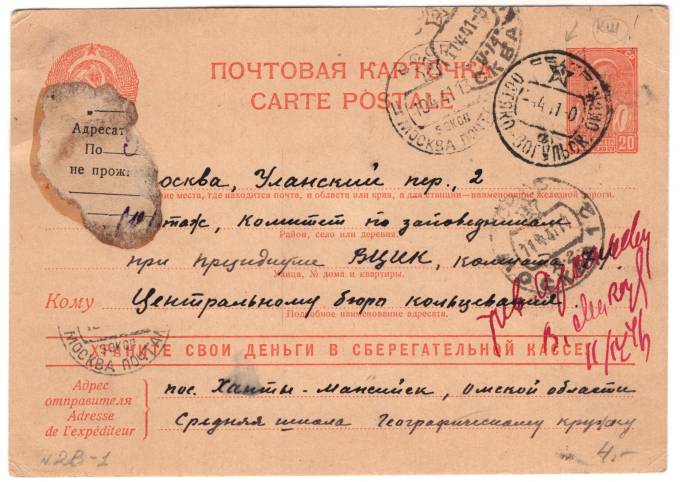 КШ!
ПОЧТОВАЯ КАРТОЧКА
CARTE POSTALE
20
10 4 41
5 ЭКСП
МОСКВА ПОЧТАМТ
Адресат
По
не прож
осква, Уланский пер., 2
ние места, где находится почта, и области или края, а для станции—наименование железной дороги.
этаж, Комитет по заповедникам
Район, село или деревня.
при президиуме ВЦИК, комната
Улица, № дома и квартиры.
Кому Центральному бюро кольцевания.
Подробное наименование адресата.
5 ЭКСП
МОСКВА ПОЧТАМ
ХРАНИТЕ СВОИ ДЕНЬГИ В СБЕРЕГАТЕЛЬНОЙ КАССЕ
Адрес отправителя
Adresse de l'expéditeur
пос. Ханты-Мансийск, Омской области
Средняя школа Географическому кружку
N 2В-1
4.-